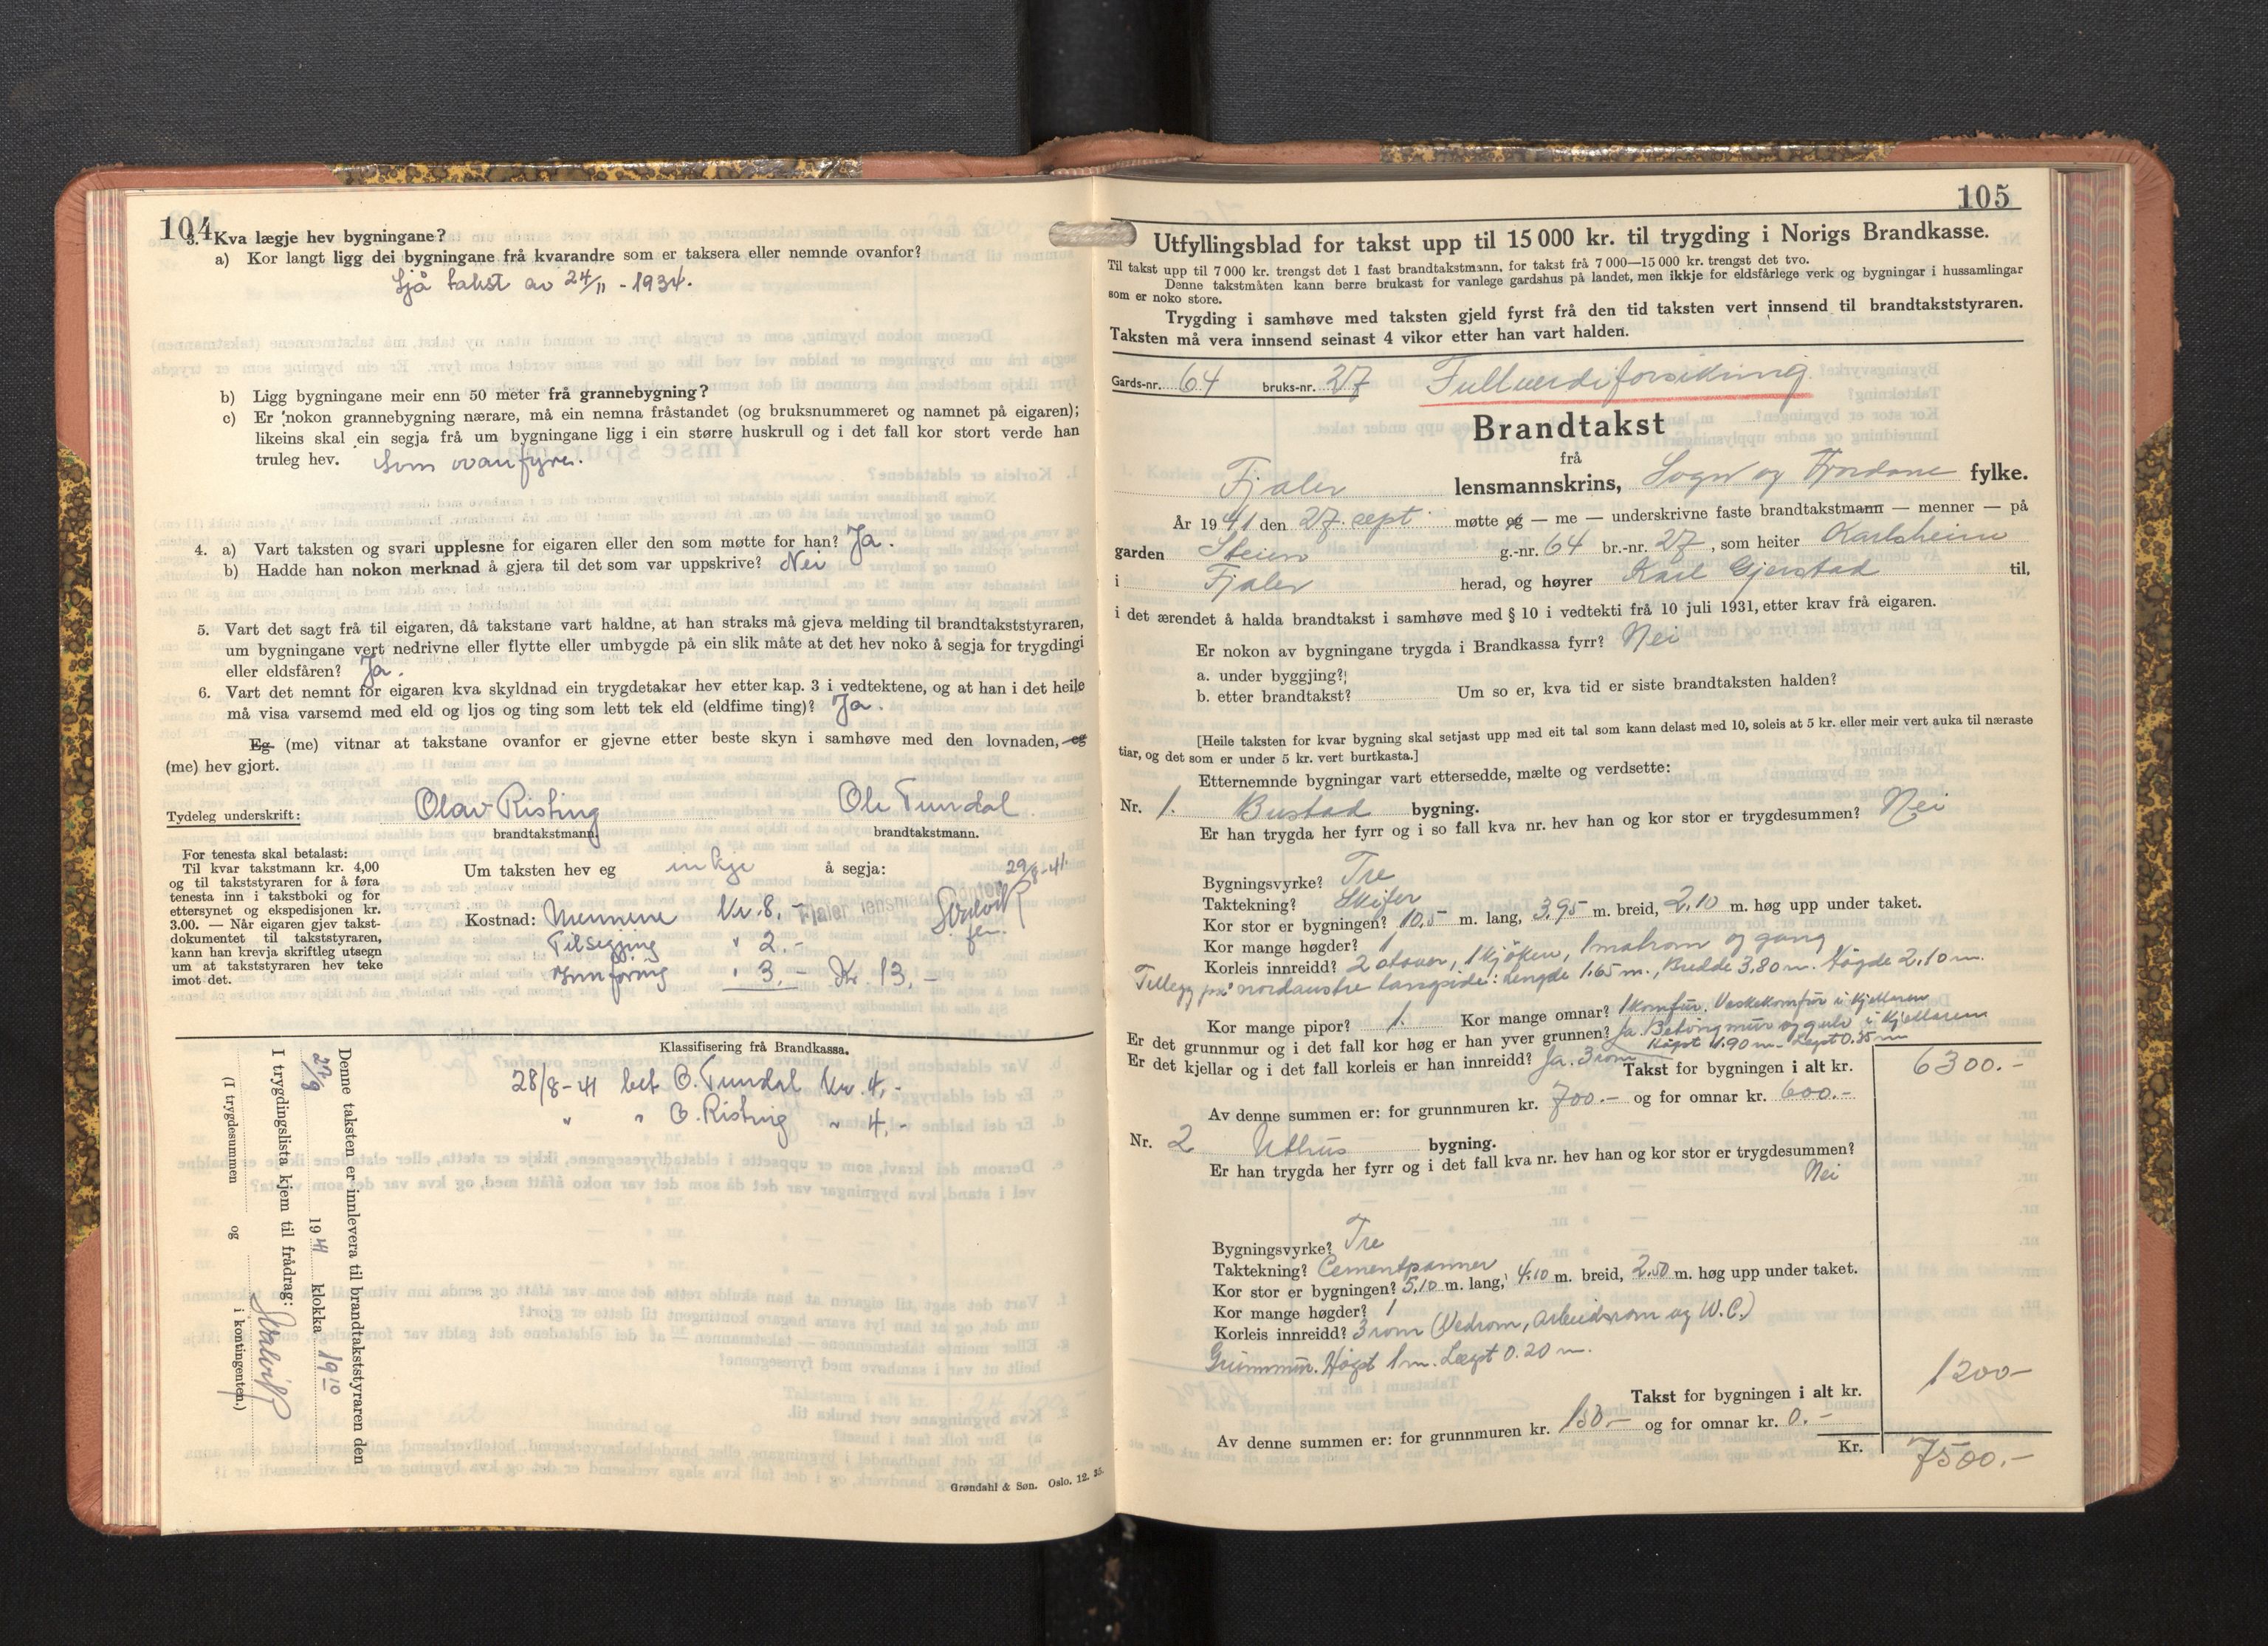 104
3. Kva lægje hev bygningane?
a) Kor langt ligg dei bygningane frå kvarandre som er taksera eller nemnde ovanfor?
Sjå takst av 24/11 - 1934.
b) Ligg bygningane meir enn 50 meter frå grannebygning?
c) Er nokon grannebygning nærare, må ein nemna fråstandet (og bruksnummeret og namnet på eigaren);
likeins skal ein segja frå um bygningane ligg i ein større huskrull og i det fall kor stort verde han
truleg hev. Som ovanfyre.
4. a) Vart taksten og svari upplesne for eigaren eller den som møtte for han? Ja.
b) Hadde han nokon merknad å gjera til det som var uppskrive? Nei
5. Vart det sagt frå til eigaren, då takstane vart haldne, at han straks må gjeva melding til brandtakststyraren,
um bygningane vert nedrivne eller flytte eller umbygde på ein slik måte at det hev noko å segja for trygdingi
eller eldsfåren? Ja.
6. Vart det nemnt for eigaren kva skyldnad ein trygdetakar hev etter kap. 3 i vedtektene, og at han i det heile
må visa varsemd med eld og ljos og ting som lett tek eld (eldfime ting)? Ja.
Eg (me) vitnar at takstane ovanfor er gjevne etter beste skyn i samhøve med den lovnaden, eg
(me) hev gjort.
Tydeleg underskrift: Olav Risting Ole Tundal
brandtakstmann. brandtakstmann.
For tenesta skal betalast:
Til kvar takstmann kr. 4,00
og til takststyraren for å føra
tenesta inn i takstboki og for
ettersynet og ekspedisjonen kr.
3.00. — Når eigaren gjev takst-
dokumentet til takststyraren,
kann han krevja skriftleg utsegn
um at takststyraren hev teke
imot det.
Um taksten hev eg inkje å segja:
29/8-41.
Fjaler lensmannskontor
Kostnad: Mennene Kr. 8.-
Tilsegjing " 2.-
Innføring " 3.- Kr. 13.-
Klassifisering frå Brandkassa.
28/8-41 bet O. Tundal Kr. 4,-
" " O. Risting " 4,-
Denne taksten er innlevera til brandtakststyraren den
27/9 1941 klokka 19 10
I trygdingslista kjem til frådrag:
(I trygdesummen og i kontingenten.)
Grøndahl & Søn. Oslo. 12. 35.
105
Utfyllingsblad for takst upp til 15 000 kr. til trygding i Norigs Brandkasse.
Til takst upp til 7 000 kr. trengst det 1 fast brandtakstmann, for takst frå 7 000—15 000 kr. trengst det tvo.
Denne takstmåten kann berre brukast for vanlege gardshus på landet, men ikkje for eldsfårlege verk og bygningar i hussamlingar
som er noko store.
Trygding i samhøve med taksten gjeld fyrst frå den tid taksten vert innsend til brandtakststyraren.
Taksten må vera innsend seinast 4 vikor etter han vart halden.
Gards-nr. 64 bruks-nr. 27 Fullverdiforsikring.
Brandtakst
frå
Fjaler lensmannskrins, Sogn og Fjordane fylke.
År 1941 den 27. sept. møtte eg — me — underskrivne faste brandtakstmann — menner — på
garden Steien g.-nr. 64 br.-nr. 27, som heiter Karlsheim
i Fjaler herad, og høyrer Karl Gjerstad til,
i det ærendet å halda brandtakst i samhøve med § 10 i vedtekti frå 10 juli 1931, etter krav frå eigaren.
Er nokon av bygningane trygda i Brandkassa fyrr? Nei
a. under byggjing?
b. etter brandtakst? Um so er, kva tid er siste brandtaksten halden?
[Heile taksten for kvar bygning skal setjast upp med eit tal som kann delast med 10, soleis at 5 kr. eller meir vert auka til næraste
tiar, og det som er under 5 kr. vert burtkasta.]
Etternemnde bygningar vart ettersedde, mælte og verdsette:
Nr. 1. Bustad bygning.
Er han trygda her fyrr og i so fall kva nr. hev han og kor stor er trygdesummen? Nei
Bygningsvyrke? Tre
Taktekning? Skifer
Kor stor er bygningen? 10.5 m. lang, 3.95 m. breid, 2.10 m. høg upp under taket.
Kor mange høgder? 1
Korleis innreidd? 2 stover, 1 kjøken, 1 matrom og gang
Tillegg på nordaustre langside: Lengde 1.65 m., Bredde 3.80 m. Høgde 2.10 m.
Kor mange pipor? 1. Kor mange omnar? 1 komfur. Vaskekomfur i kjellaren
Er det grunnmur og i det fall kor høg er han yver grunnen? Ja. Betongmur og gulv i kjellaren
Høgst 1.90 m. Lægst 0.35 m
Er det kjellar og i det fall korleis er han innreidd? Ja. 3 rom
Takst for bygningen i alt kr. 6300.-
Av denne summen er: for grunnmuren kr. 700.- og for omnar kr. 600.-
Nr. 2 Uthus bygning.
Er han trygda her fyrr og i det fall kva nr. hev han og kor stor er trygdesummen?
Nei
Bygningsvyrke? Tre
Taktekning? Cementpanner
Kor stor er bygningen? 5.10 m. lang, 4.10 m. breid, 2.50 m. høg upp under taket.
Kor mange høgder? 1
Korleis innreidd? 3 rom (Vedrom, arbeidsrom og W.C.)
Grunnmur. Høgst 1 m. Lægst 0.20 m.
Takst for bygningen i alt kr. 1200-
Av denne summen er: for grunnmuren kr. 150.- og for omnar kr. 0.-
Kr. 7500.-